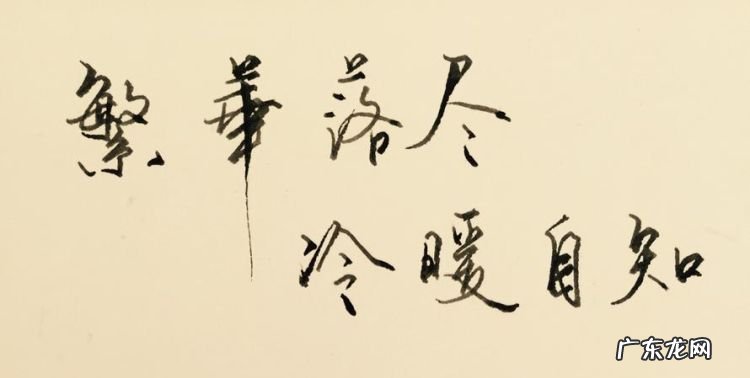 繁華落尽
冷暖自知
广东龙网